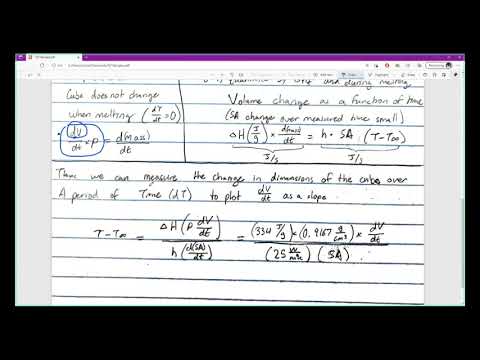 Cube does not change
when melting (dT/dt = 0)
dV/dt × ρ = d(Mass)/dt
and during melting
Volume change as a function of time
(SA change over measured time small)
ΔH (J/g) × d(mass)/dt = h · SA · (T - T∞)
J/s J/s
we can measure the change in dimensions of the cube over
A period of Time (dT) to plot dV/dt as a slope
T - T∞ = ΔH (ρ dV/dt) / h (d(SA)/dt) = (334 J/g) × (0.9167 g/cm³) × dV/dt / (25 W/m²C) (SA)